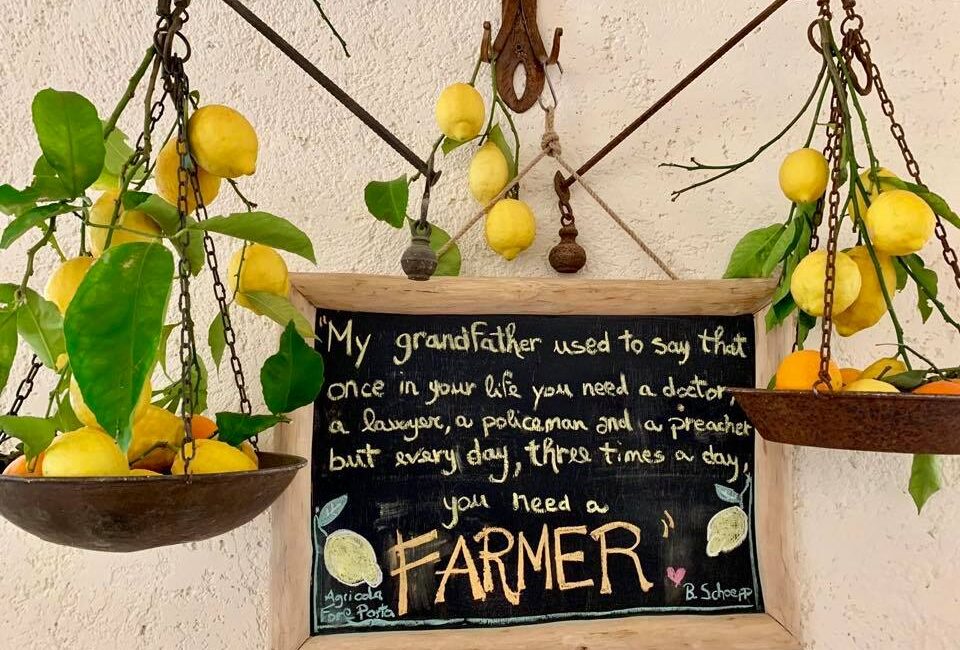 "My grandfather used to say that
once in your life you need a doctor,
a lawyer, a policeman and a preacher
but every day, three times a day,
you need a
FARMER"
Agricola
Fore Porta
B. Schoepp